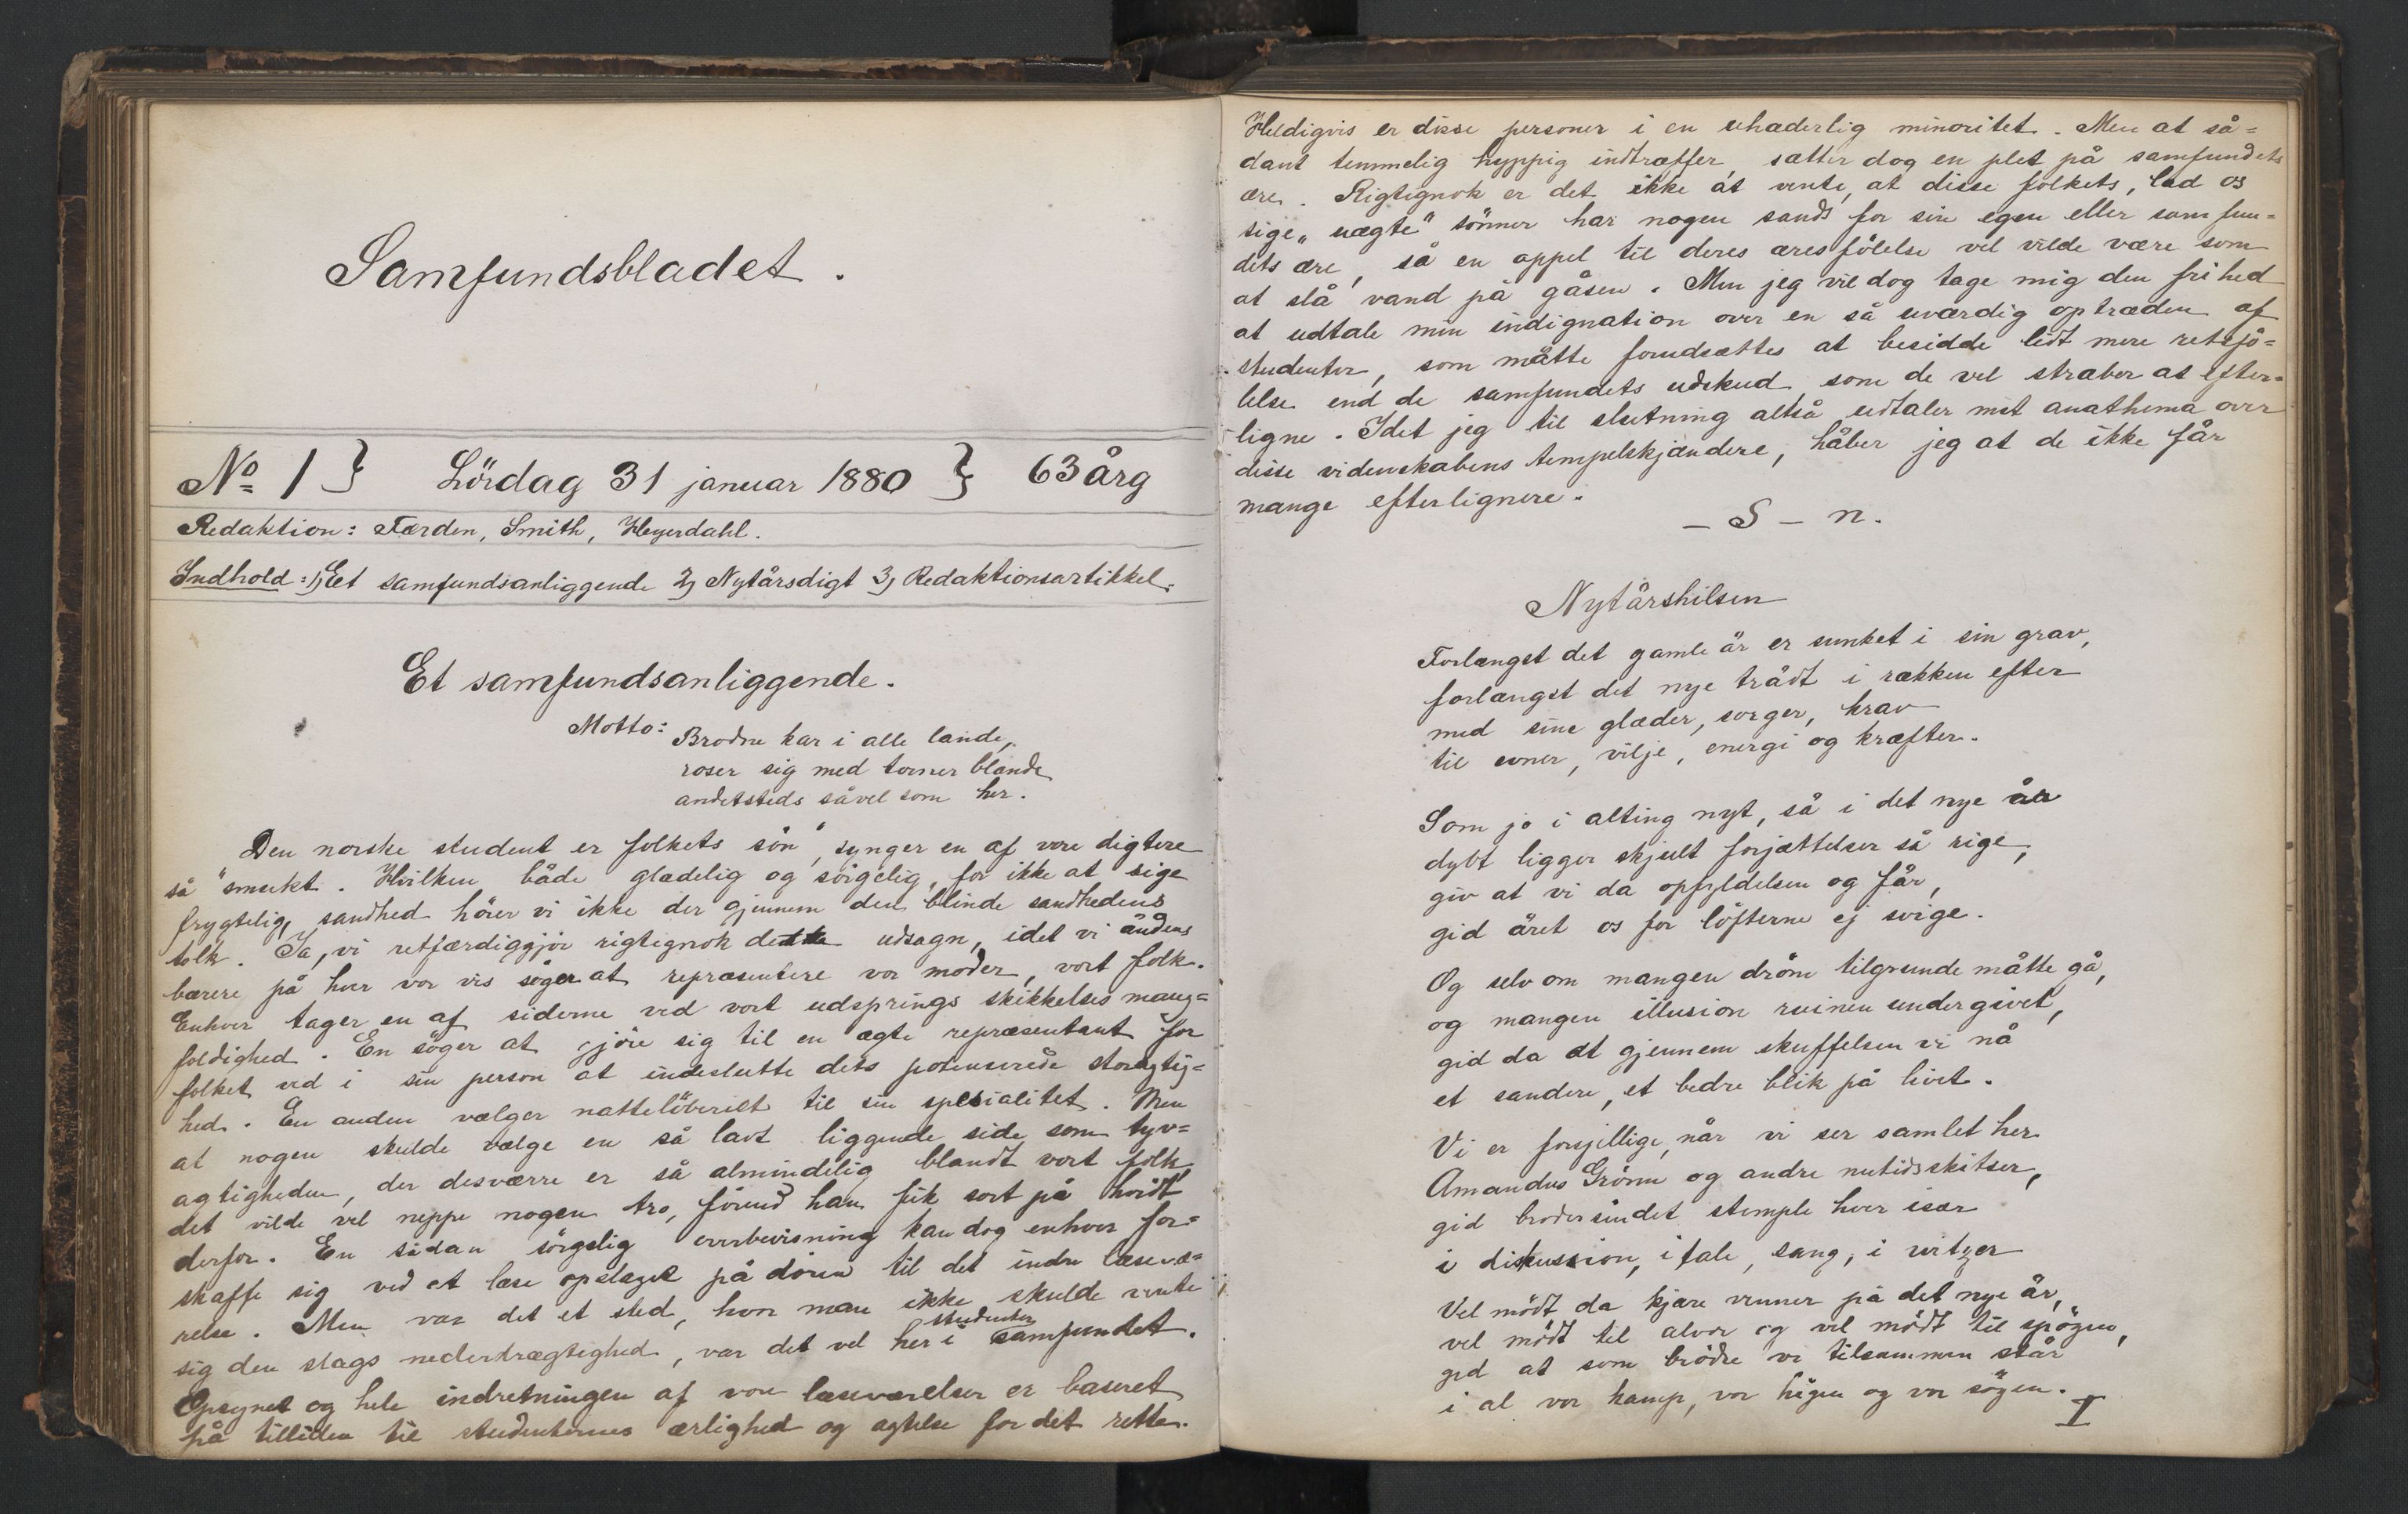 Samfundsbladet.
No 1 } Lördag 31 januar 1880 } 63 årg
Redaktion: Færden, Smith, Heyerdahl.
Indhold: 1) Et samfundsanliggende 2) Nytårsdigt 3) Redaktionsartikkel.
Et samfundsanliggende.
Motto: Brodne kar i alle lande,
roser sig med torner blande
andetsteds såvel som her.
Den norske student er folkets sön", synger en af vore digtere
så smukt. Hvilken både glædelig og sörgelig, for ikke at sige
frygtelig, sandhed hörer vi ikke der gjennem den blinde sandhedens
tolk. Ja, vi retfærdiggjör rigtignok dette udsagn, idet vi åndens
bærere på hver vor vis söger at repræsentere vor moder, vort folk.
Enhver tager en af siderne ved vort udsprings skikkelses mang=
foldighed. En söger at gjöre sig til en ægte repræsentant for
folket ved i sin person at indeslutte dets potenserede storagtig=
hed. En anden vælger natteløberiet til sin spesialitet. Men
at nogen skulde vælge en så lavt liggende side som tyv=
agtigheden, der desværre er så almindelig blandt vort folk,
det vilde vel neppe nogen tro, förend han fik sort på hvidt
derfor. En sådan sörgelig overbevisning kan dog enhver for=
skaffe sig ved at læse opslaget på dören til det indre læsevæ=
relse. Men var det et sted, hvor man ikke skulde vente
sig den slags nederdrægtighed, var det vel her i studentersamfundet.
Opsynet og hele indretningen af vore læseværelser er baseret
på tilliden til studenternes ærlighed og agtelse for det rette.
Heldigvis er disse personer i en uhæderlig minoritet. Men at så=
dant temmelig hyppig indtræffer sætter dog en plet på samfundets
ære. Rigtignok er det ikke at vente, at disse folkets, lad os
sige „uægte" sönner har nogen sands for sin egen eller samfun=
dets ære, så en appel til deres æresfölelse vel vilde være som
at slå vand på gåsen. Men jeg vil dog tage mig den frihed
at udtale min indignation over en så uværdig optræden af
studenter, som måtte forudsættes at besidde lidt mere retsfö=
lelse end de samfundets udskud som de vel stræber at efter=
ligne. Idet jeg til slutning altså udtaler mit anathema over
disse videnskabens tempelskjændere, håber jeg at de ikke får
mange efterlignere.
– S – n.
Nytårshilsen
Forlængst det gamle år er sunket i sin grav,
forlængst det nye trådt i rækken efter
med sine glæder, sorger, krav
til evner, vilje, energi og kræfter.
Som jo i alting nyt, så i det nye år
dybt ligger skjult forjættelser så rige,
giv at vi da opfyldelsen og får,
gid året os for löfterne ej svige.
Og selv om mangen dröm tilgrunde måtte gå,
og mangen illusion ruinen undergivet,
gid da at gjennem skuffelsen vi nå
et sandere, et bedre blik på livet.
Vi er forsjellige, når vi ser samlet her
Amandus Grönn og andre nutidsskitser,
gid brodersindet stemple hver især
i diskussion, i tale, sang, i vitzer
Vel mödt da kjære venner på det nye år,
vel mödt til alvor og vel mödt til spögen,
gid at som brödre vi tilsammen står
i al vor kamp, vor higen og vor sögen.
I